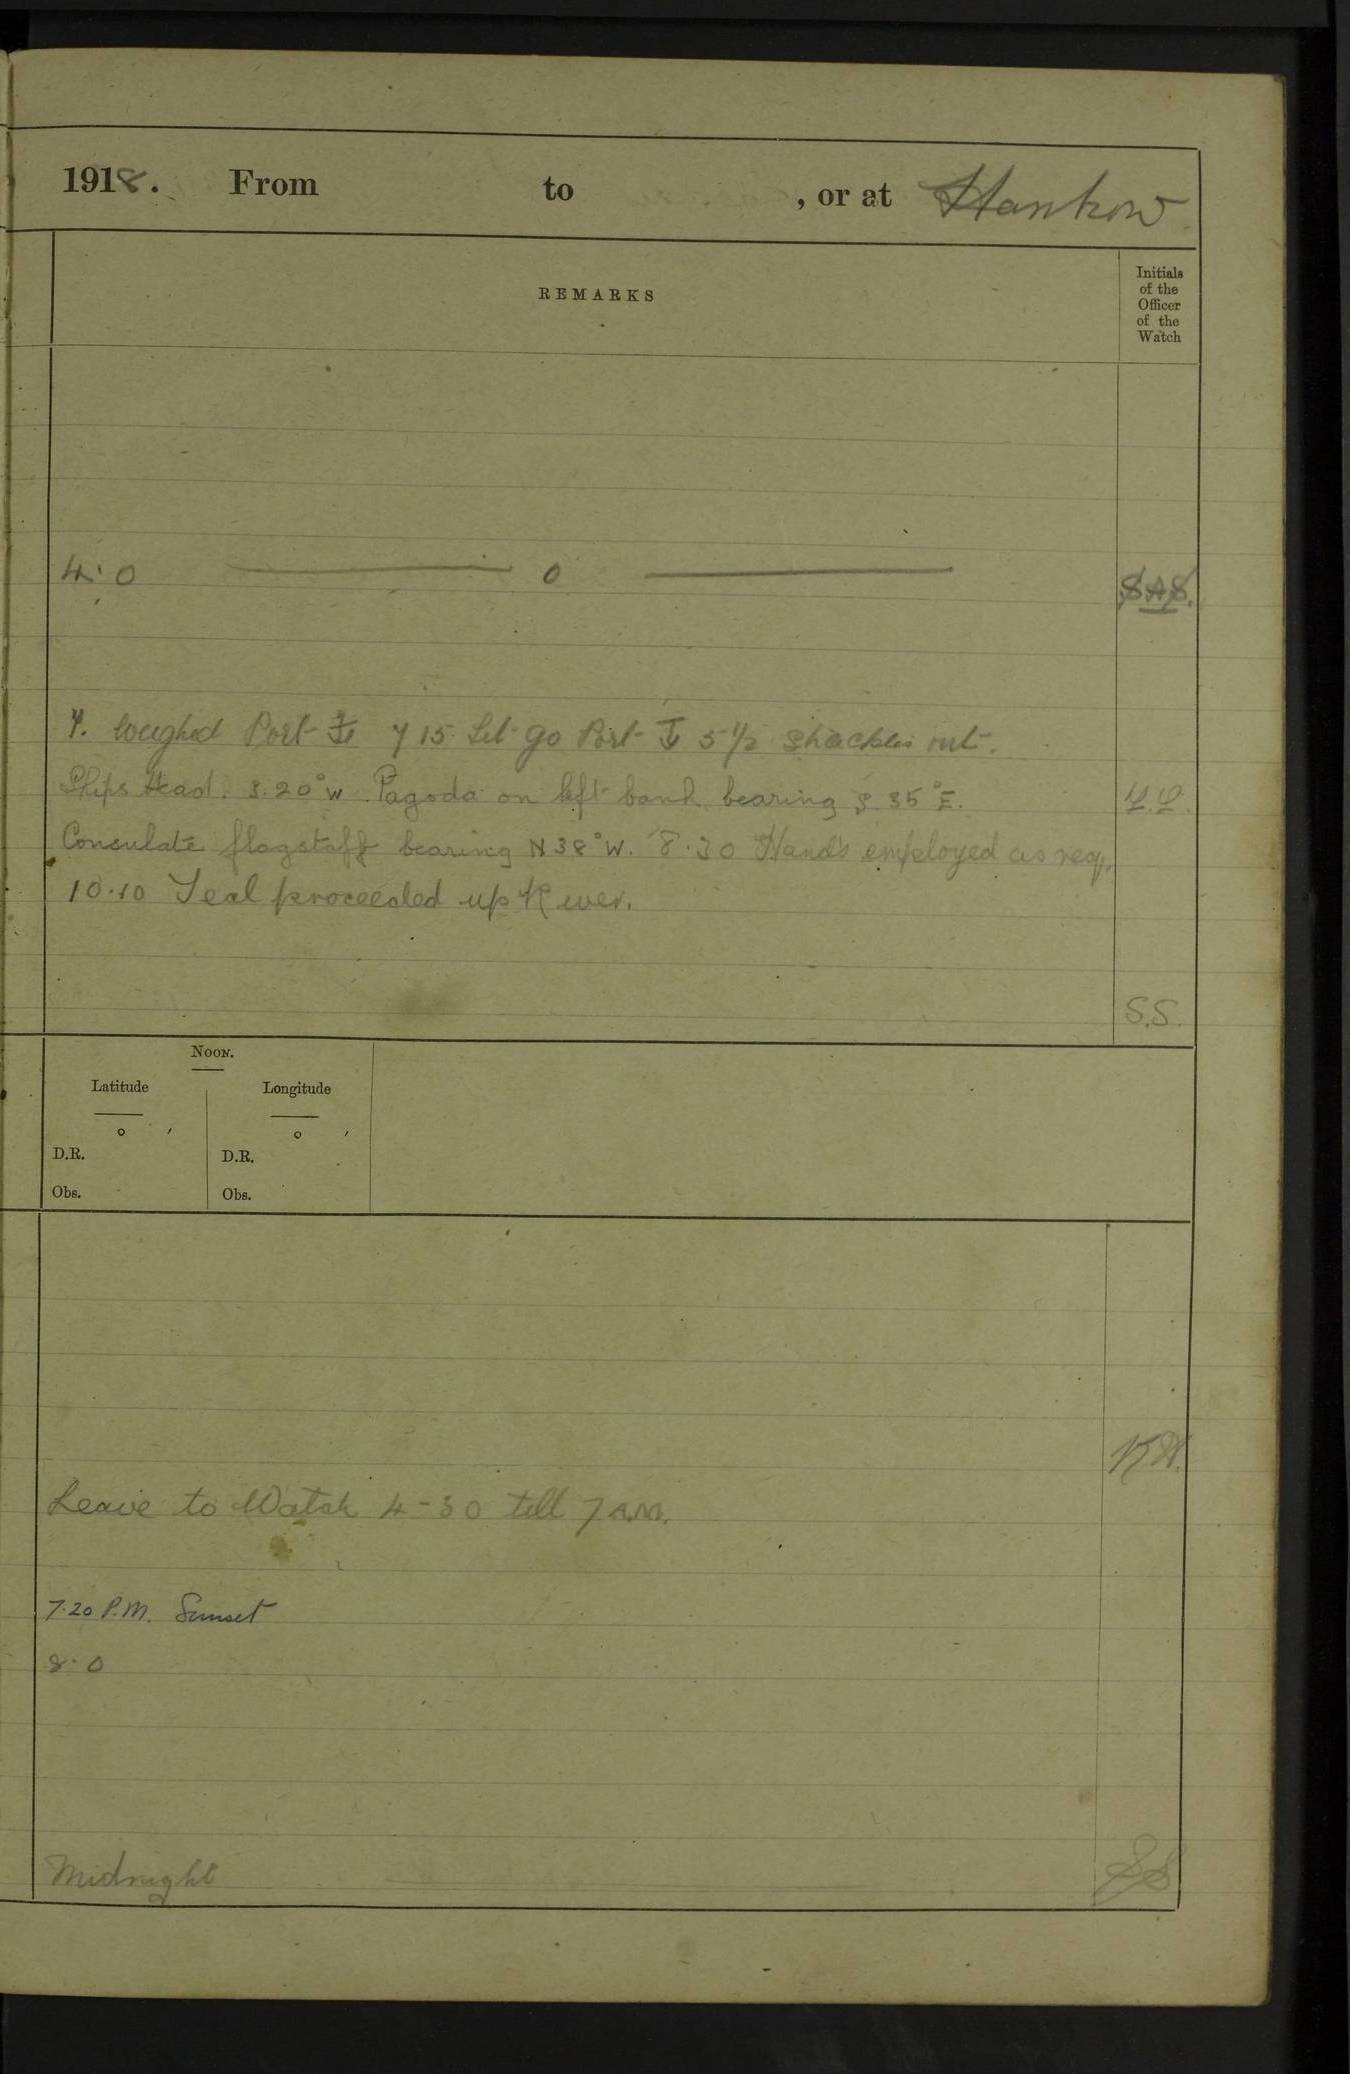 1918. From to , or at Hankow
REMARKS
Initials
of the
Officer
of the
Watch
4.0 0
S.A.S.
7. weighed Port ⚓ 7 15 Let go Port ⚓ 5 1/2 shackles out.
Ships Head. S.20°W. Pagoda on left bank bearing S 35°E.
Consulate flagstaff bearing N38°W. 8.30 Hands employed as req.
10.10 Teal proceeded up River.
S.S.
Noon.
Latitude Longitude
° ′ ° ′
D.R. D.R.
Obs. Obs.
Leave to Watch 4-30 till 7 A.M.
7.20 P.M. Sunset
8.0
Midnight
SS